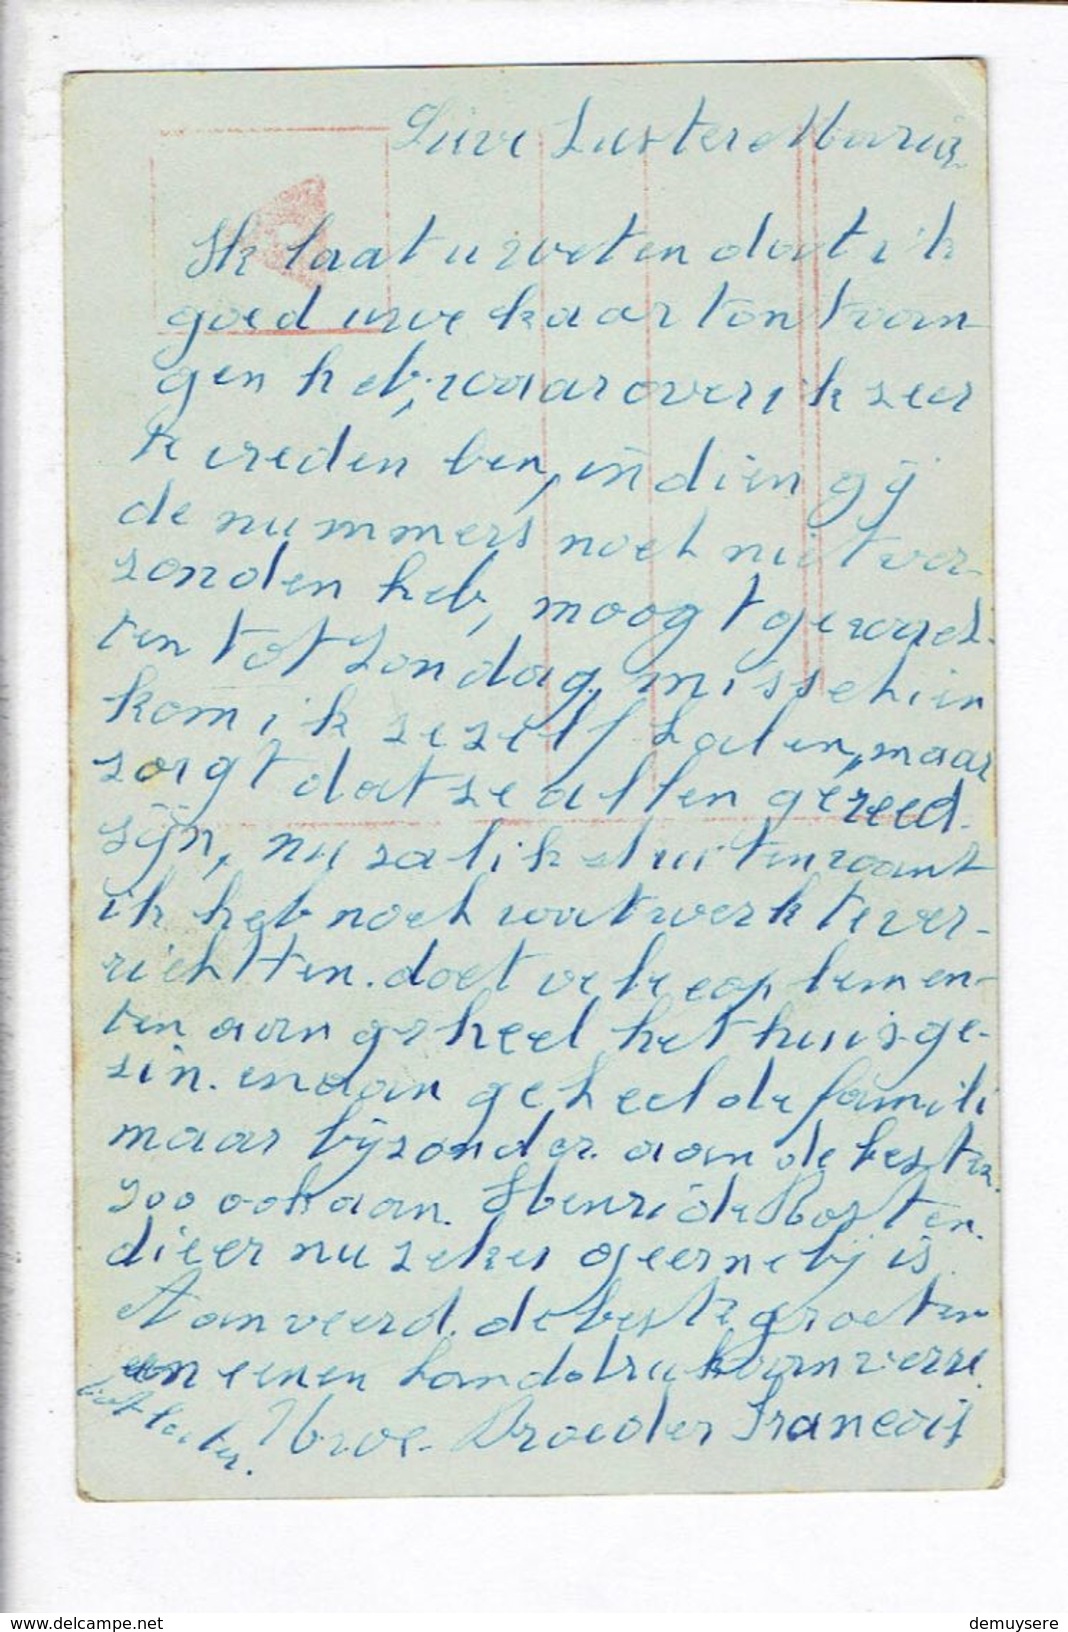 Lieve Zuster Maria
Ik laat u weten dat ik
goed uwe kaart ontvan-
gen heb, waarover ik zeer
te vreden ben, indien gij
de nummers noch niet ver-
zonden heb, moogt ge wach-
ten tot Zondag, misschien
kom ik ze zelf halen, maar
zorgt dat ze allen gereed
zijn, nu zal ik sluiten want
ik heb noch wat werk te ver-
richtten. doet vele complemen-
ten aan geheel het huisge-
zin. en aan geheel de famili
maar bijzonder aan de
zoo ook aan. Henri de
die er nu zeker geerne bij is
Aanveerd. de beste groeten
en eenen handdruk van verre.
tot later. Uwe. Broeder François
demuysere